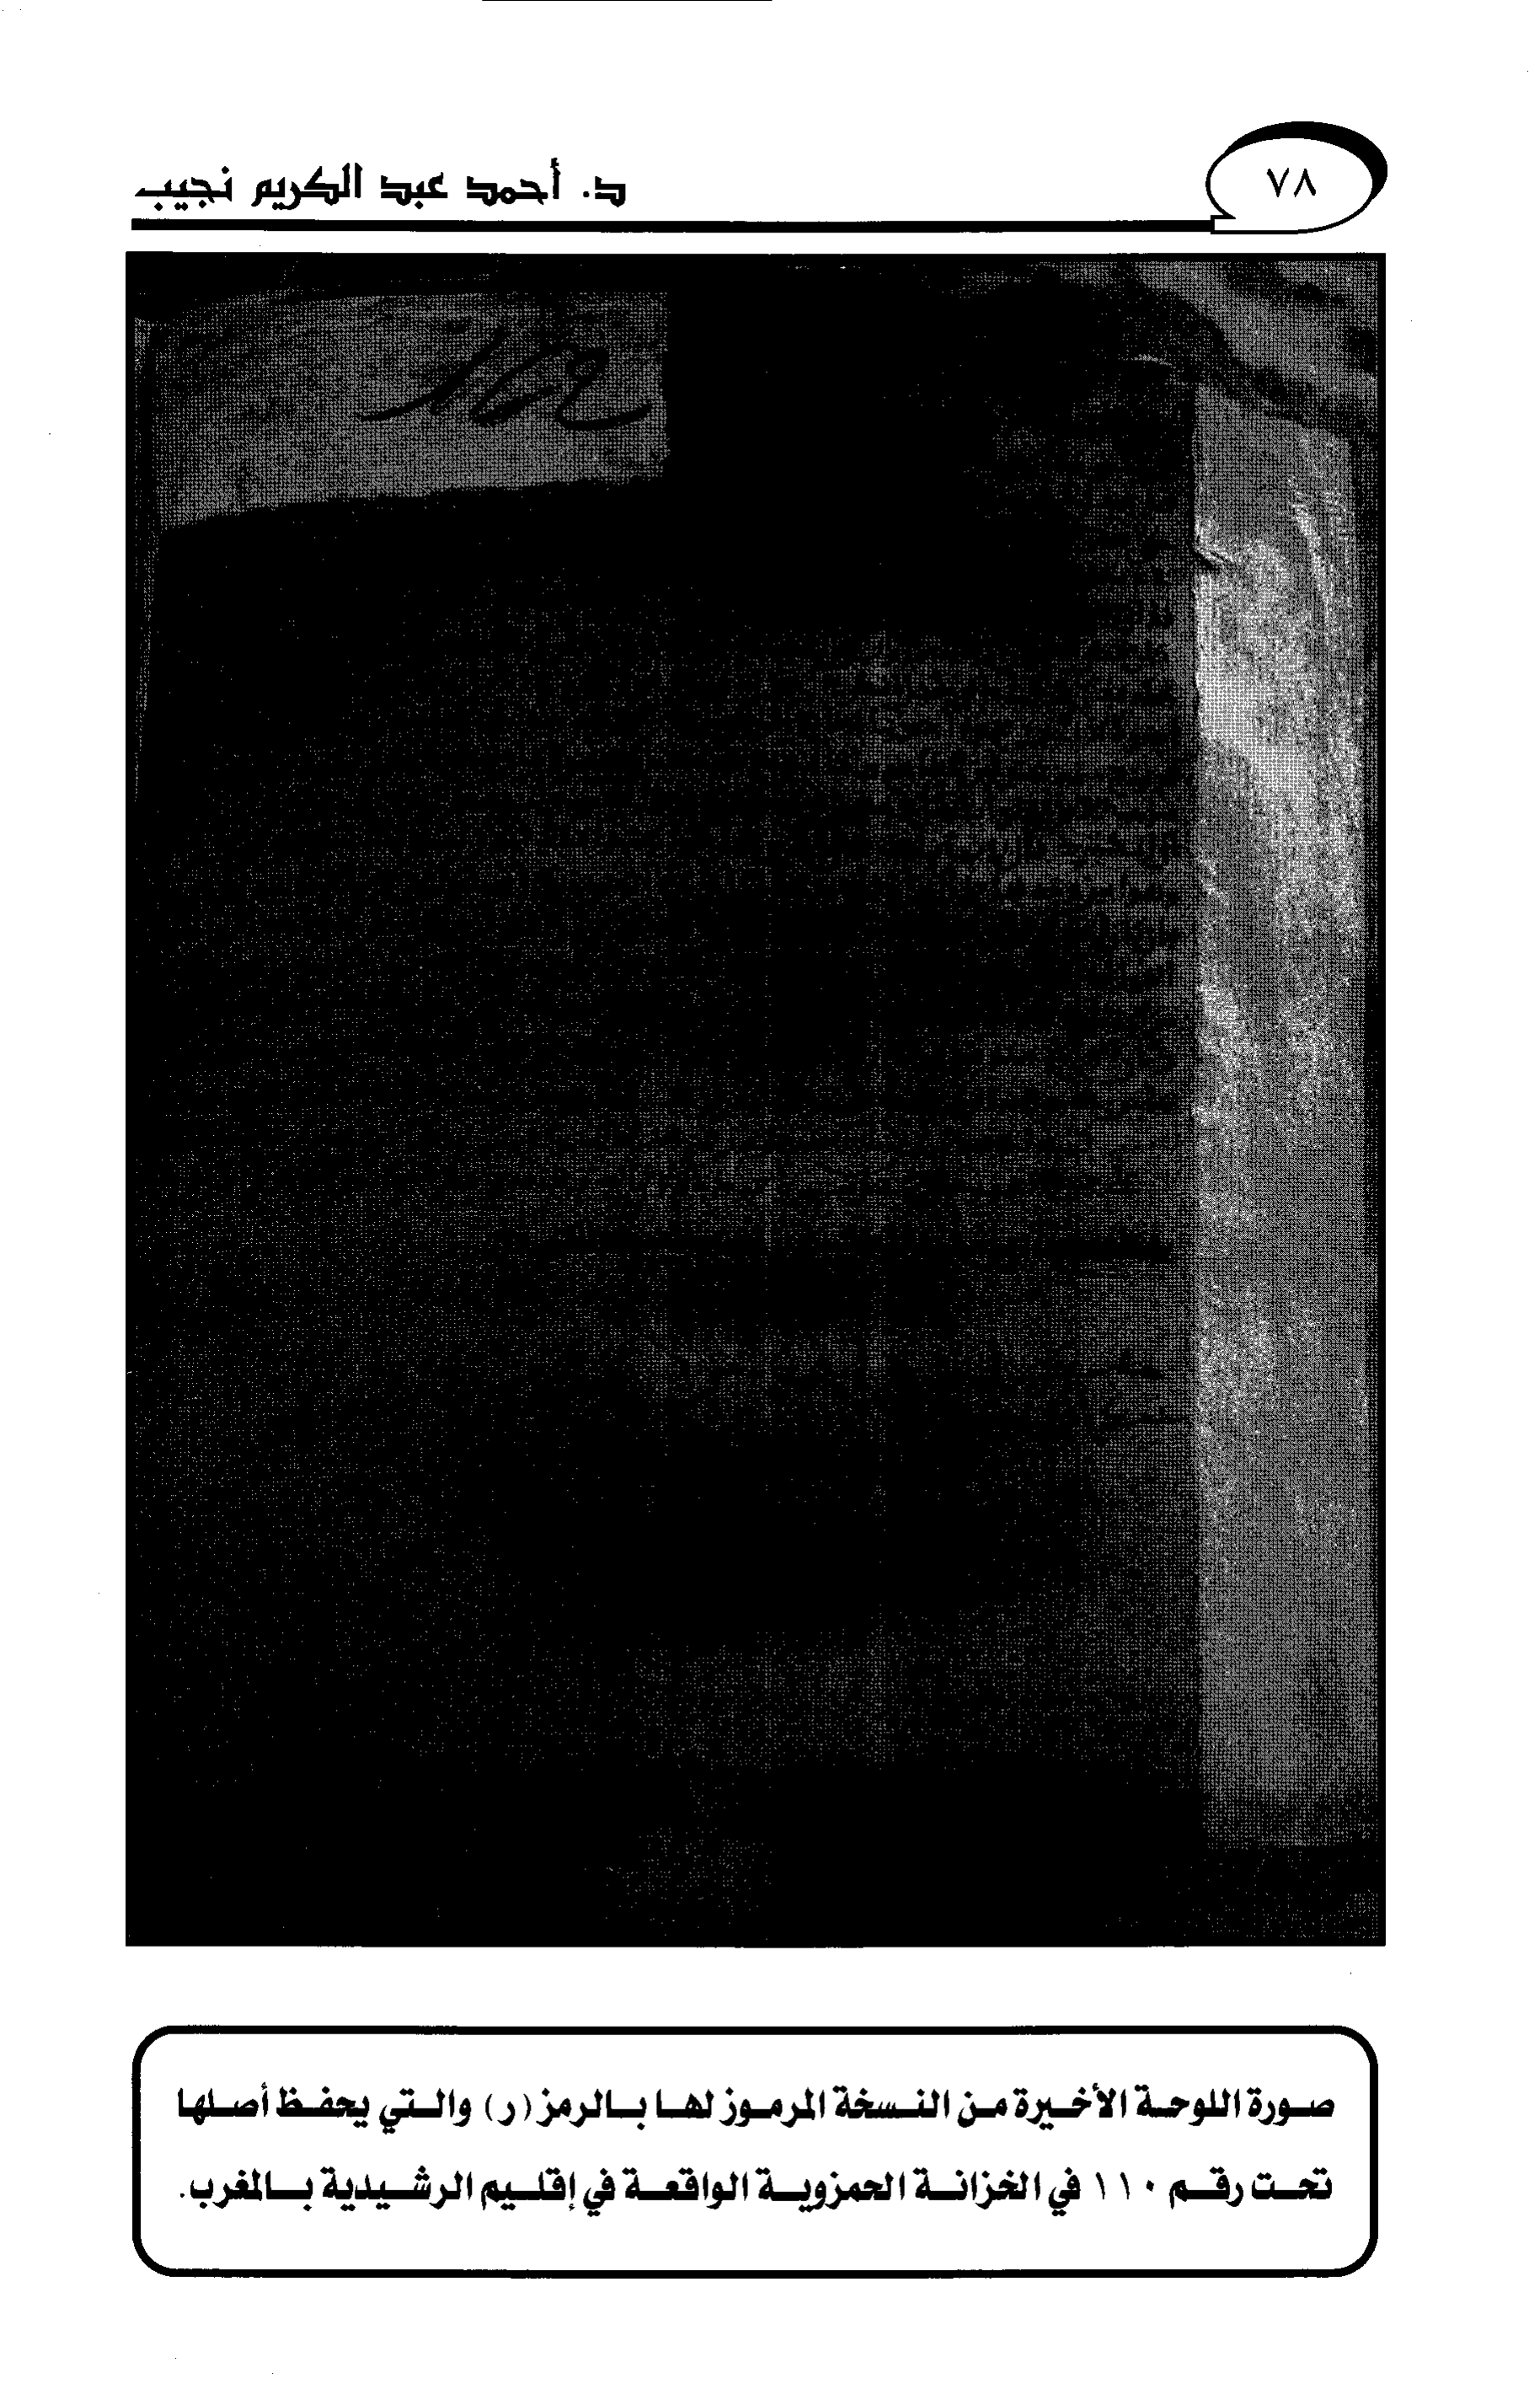 ٧٨
د. أحمد عبد الكريم نجيب
صورة اللوحة الأخيرة من النسخة المرموز لها بالرمز (ر) والتي يحفظ أصلها
تحت رقم ١١٠ في الخزانة الحمزوية الواقعة في إقليم الرشيدية بالمغرب.